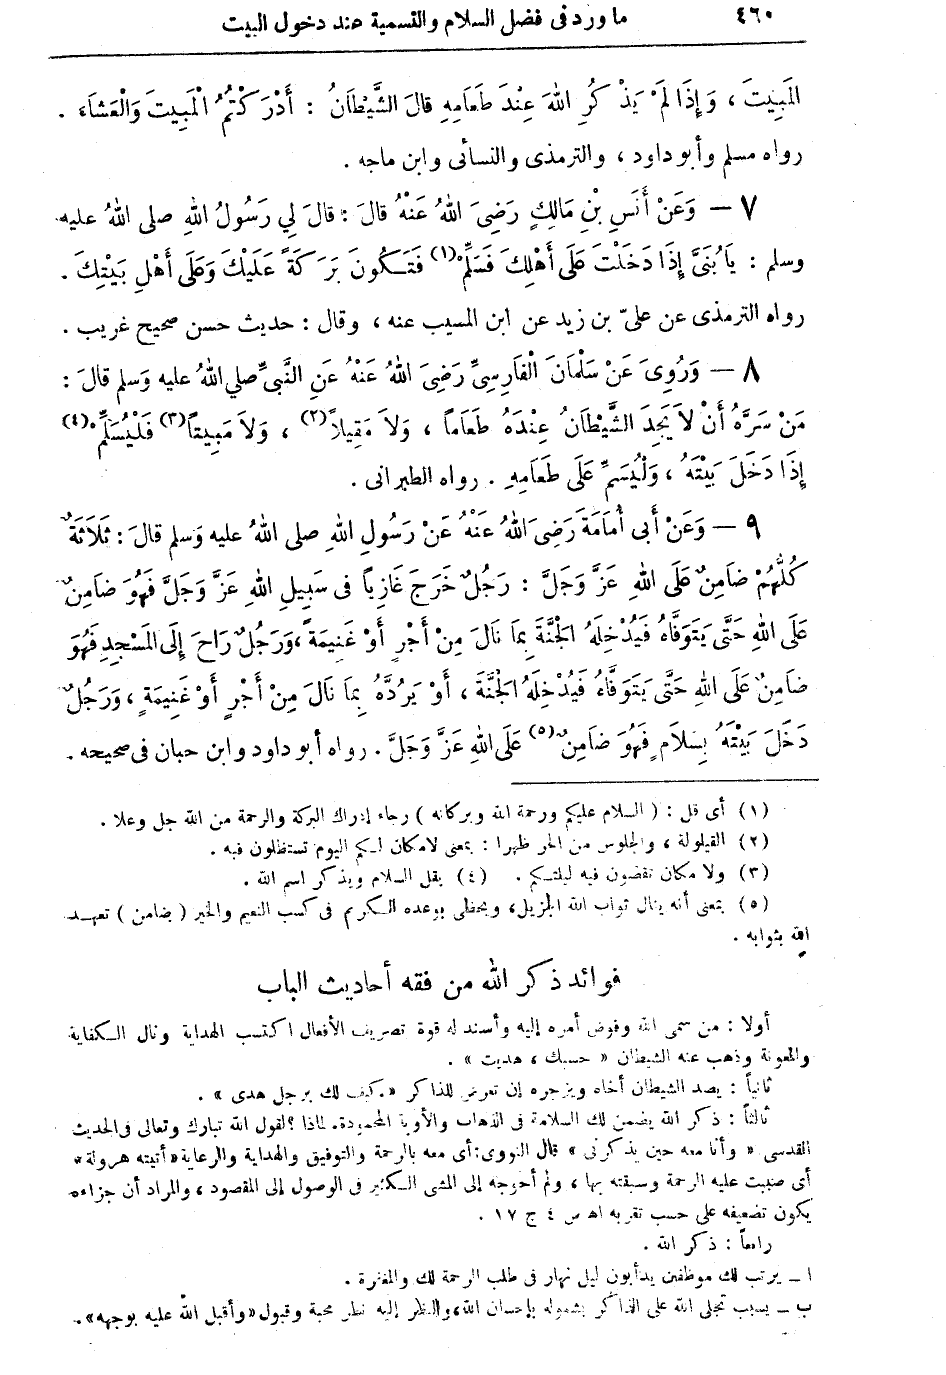 ٤٦٠ ما ورد فى فضل السلام والتسمية عند دخول البيت
المَبِيتَ ، وَإِذَا لَمْ يَذْكُرِ اللهَ عِنْدَ طَعَامِهِ قالَ الشَّيْطَانُ : أَدْرَكْتُمُ الْمَبِيتَ وَالْعَشَاءَ .
رواه مسلم وأبو داود ، والترمذى والنسائى وابن ماجه .
٧ — وَعَنْ أَنَسِ بْنِ مَالِكٍ رَضِىَ اللهُ عَنْهُ قالَ : قالَ لِي رَسُولُ اللهِ صلى اللهُ عليه
وسلم : يَا بُنَىَّ إِذَا دَخَلْتَ عَلَى أَهْلِكَ فَسَلِّمْ (١) فَتَكُونَ بَرَكَةً عَلَيْكَ وَعَلَى أَهْلِ بَيْتِكَ .
رواه الترمذى عن علىّ بن زيد عن ابن المسيب عنه ، وقال : حديث حسن صحيح غريب .
٨ — وَرُوِىَ عَنْ سَلْمَانَ الْفَارِسِىِّ رَضِىَ اللهُ عَنْهُ عَنِ النَّبِىِّ صلى اللهُ عليه وَسلم قالَ :
مَنْ سَرَّهُ أَنْ لاَ يَجِدَ الشَّيْطَانُ عِنْدَهُ طَعَاماً ، وَلاَ مَقِيلاً (٢) ، وَلاَ مَبِيتاً (٣) فَلْيُسَلِّمْ (٤)
إِذَا دَخَلَ بَيْتَهُ ، وَلْيُسَمِّ عَلَى طَعَامِهِ . رواه الطبرانى .
٩ — وَعَنْ أَبى أُمَامَةَ رَضِىَ اللهُ عَنْهُ عَنْ رَسُولِ اللهِ صلى اللهُ عليه وَسلم قالَ : ثَلاَثَةٌ
كُلُّهُمْ ضَامِنٌ عَلَى اللهِ عَزَّ وَجَلَّ : رَجُلٌ خَرَجَ غَازِياً فى سَبِيلِ اللهِ عَزَّ وَجَلَّ فَهُوَ ضَامِنٌ
عَلَى اللهِ حَتَّى يَتَوَفَّاهُ فَيُدْخِلَهُ الْجَنَّةَ بِمَا نَالَ مِنْ أَجْرٍ أَوْ غَنِيمَةً ، وَرَجُلٌ رَاحَ إِلَى المَسْجِدِ فَهُوَ
ضَامِنٌ عَلَى اللهِ حَتَّى يَتَوَفَّاهُ فَيُدْخِلَهُ الْجَنَّةَ ، أَوْ يَرُدَّهُ بِمَا نَالَ مِنْ أَجْرٍ أَوْ غَنِيمَةٍ ، وَرَجُلٌ
دَخَلَ بَيْتَهُ بِسَلاَمٍ فَهُوَ ضَامِنٌ (٥) عَلَى اللهِ عَزَّ وَجَلَّ . رواه أبو داود وابن حبان فى صحيحه .
(١) أى قل : ( السلام عليكم ورحمة الله وبركاته ) رجاء إدراك البركة والرحمة من الله جل وعلا .
(٢) القيلولة ، والجلوس من الحر ظهرا : بمعنى لامكان لكم اليوم تستظلون فيه .
(٣) ولا مكان تقضون فيه ليلتكم . (٤) يقل السلام ويذكر اسم الله .
(٥) بمعنى أنه ينال ثواب الله الجزيل، ويحظى بوعده الكريم فى كسب النعيم والخير ( ضامن ) تعهد
الله بثوابه .
فوائد ذكر الله من فقه أحاديث الباب
أولا : من سمى الله وفوض أمره إليه وأسند له قوة تصريف الأفعال اكتسب الهداية ونال الكفاية
والمعونة وذهب عنه الشيطان « حسبك ، هديت » .
ثانياً : يصد الشيطان أخاه ويزجره إن تعرض للذاكر « كيف لك برجل هدى » .
ثالثاً : ذكر الله يضمن لك السلامة فى الذهاب والأوبة المحمودة. لماذا ؟ لقول الله تبارك وتعالى فى الحديث
القدسى « وأنا معه حين يذكرنى » قال النووى : أى معه بالرحمة والتوفيق والهداية والرعاية « أتيته هرولة »
أى صببت عليه الرحمة وسبقته بها ، ولم أحوجه إلى المشى الكثير فى الوصول إلى المقصود ، والمراد أن جزاءه
يكون تضعيفه على حسب تقربه اه س ٤ ج ١٧ .
رابعاً : ذكر الله .
ا — يرتب لك موظفين يدأبون ليل نهار فى طلب الرحمة لك والمغفرة .
ب — يسبب تجلى الله على الذاكر بشموله بإحسان الله، والنظر إليه نظر محبة وقبول «وأقبل الله عليه بوجهه».